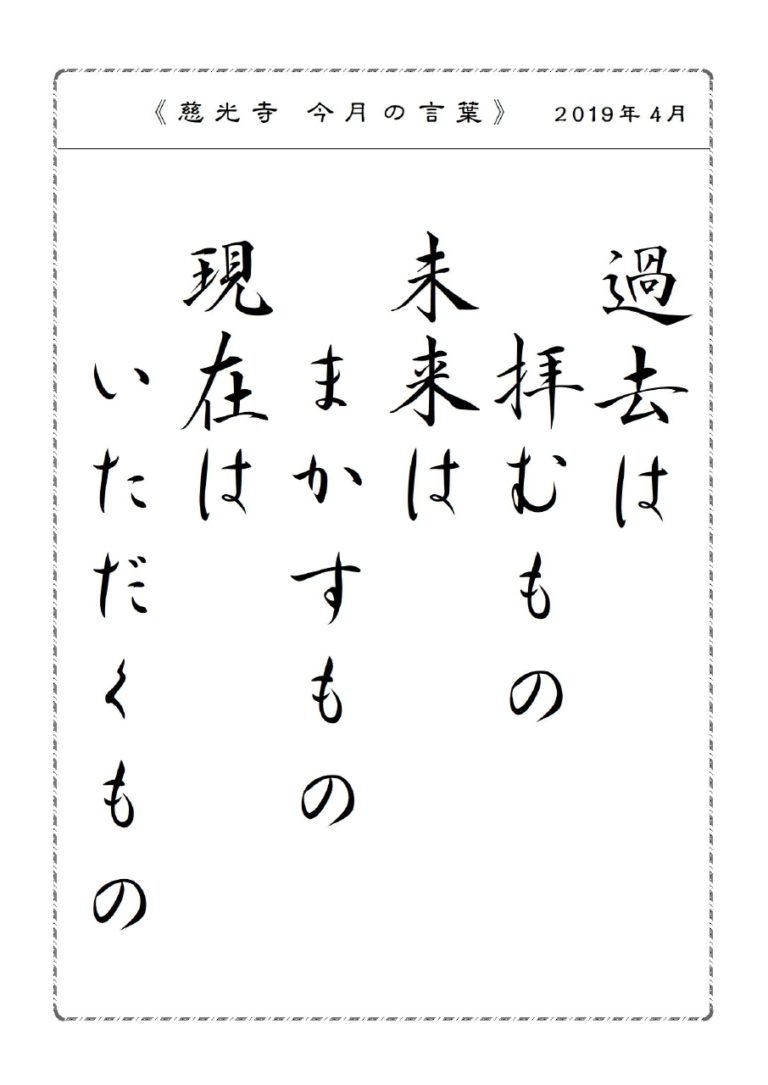 《慈光寺 今月の言葉》 2019年4月
過去は
拝むもの
未来は
まかすもの
現在は
いただくもの